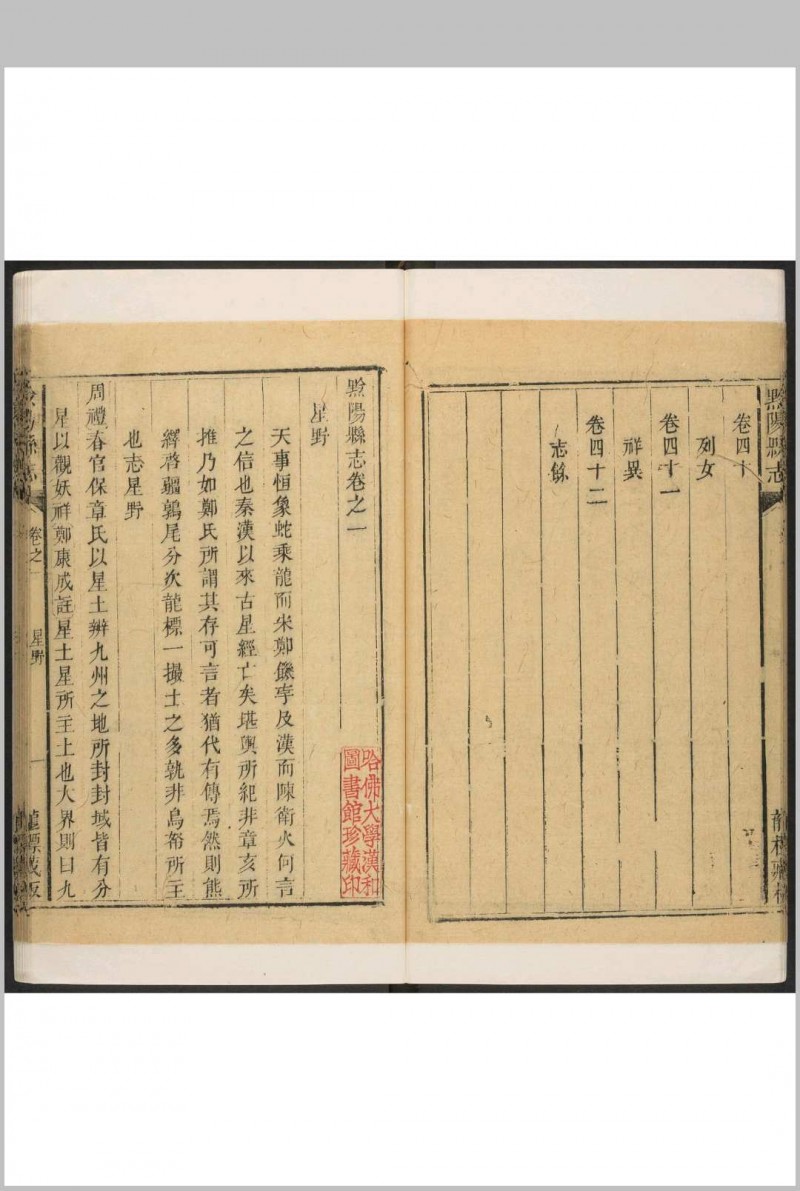 黔陽縣志
卷四十
列女
卷四十一
祥異
卷四十二
志餘
黔陽縣志卷之一
星野
天事恒象蛇乘龍而宋鄭饑孛及漢而陳衛火何言
之信也秦漢以來古星經亡矣堪輿所紀非章亥所
推乃如鄭氏所謂其存可言者猶代有傳焉然則熊
繹啓疆鶉尾分次龍標一撮土之多孰非鳥帑所主
也志星野
周禮春官保章氏以星土辨九州之地所封封域皆有分
星以觀妖祥鄭康成註星土星所主土也大界則曰九
哈佛大學漢和
圖書館珍藏印
卷之一
星野
一
龍標藏板